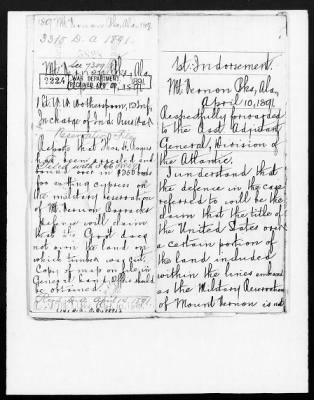 3315 D-a 1891.
Mt. Vernon Bks, Ala,
2224 WAR DEPARTMENT 1891
RECEIVED APR
1 Lt. W. W. Wotherspoon, 12 Inf.
In charge of Ind. Pris.
Reports that Thos. W.
has been arrested and
bound over in $300
for cutting cypress on
the military reservation
of Mt. Vernon Barracks
Defence will claim
that the Govt does
not own the land on
which timber was cut.
Copy of map on file in
General Land Office should
be obtained.
April 14 1891.
1st Indorsement.
Mt. Vernon Bks, Ala,
April 10, 1891
Respectfully forwarded
to the Asst Adjutant
General, Division of
the Atlantic.
I understand that
the defence in the case
referred to will be the
claim that the title of
the United States over
a certain portion of
the land included
within the lines embraced
as the Military Reservation
of Mount Vernon is not